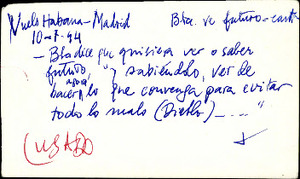 Vuelo Habana-Madrid Bta. ve futuro-cart
10-8-94
- Bta dice que quisiera ver o saber
futuro, "y sabiéndolo, ver de
ahora
hacer lo que convenga para evitar
todo lo malo (Diablo) -...."
(USADO